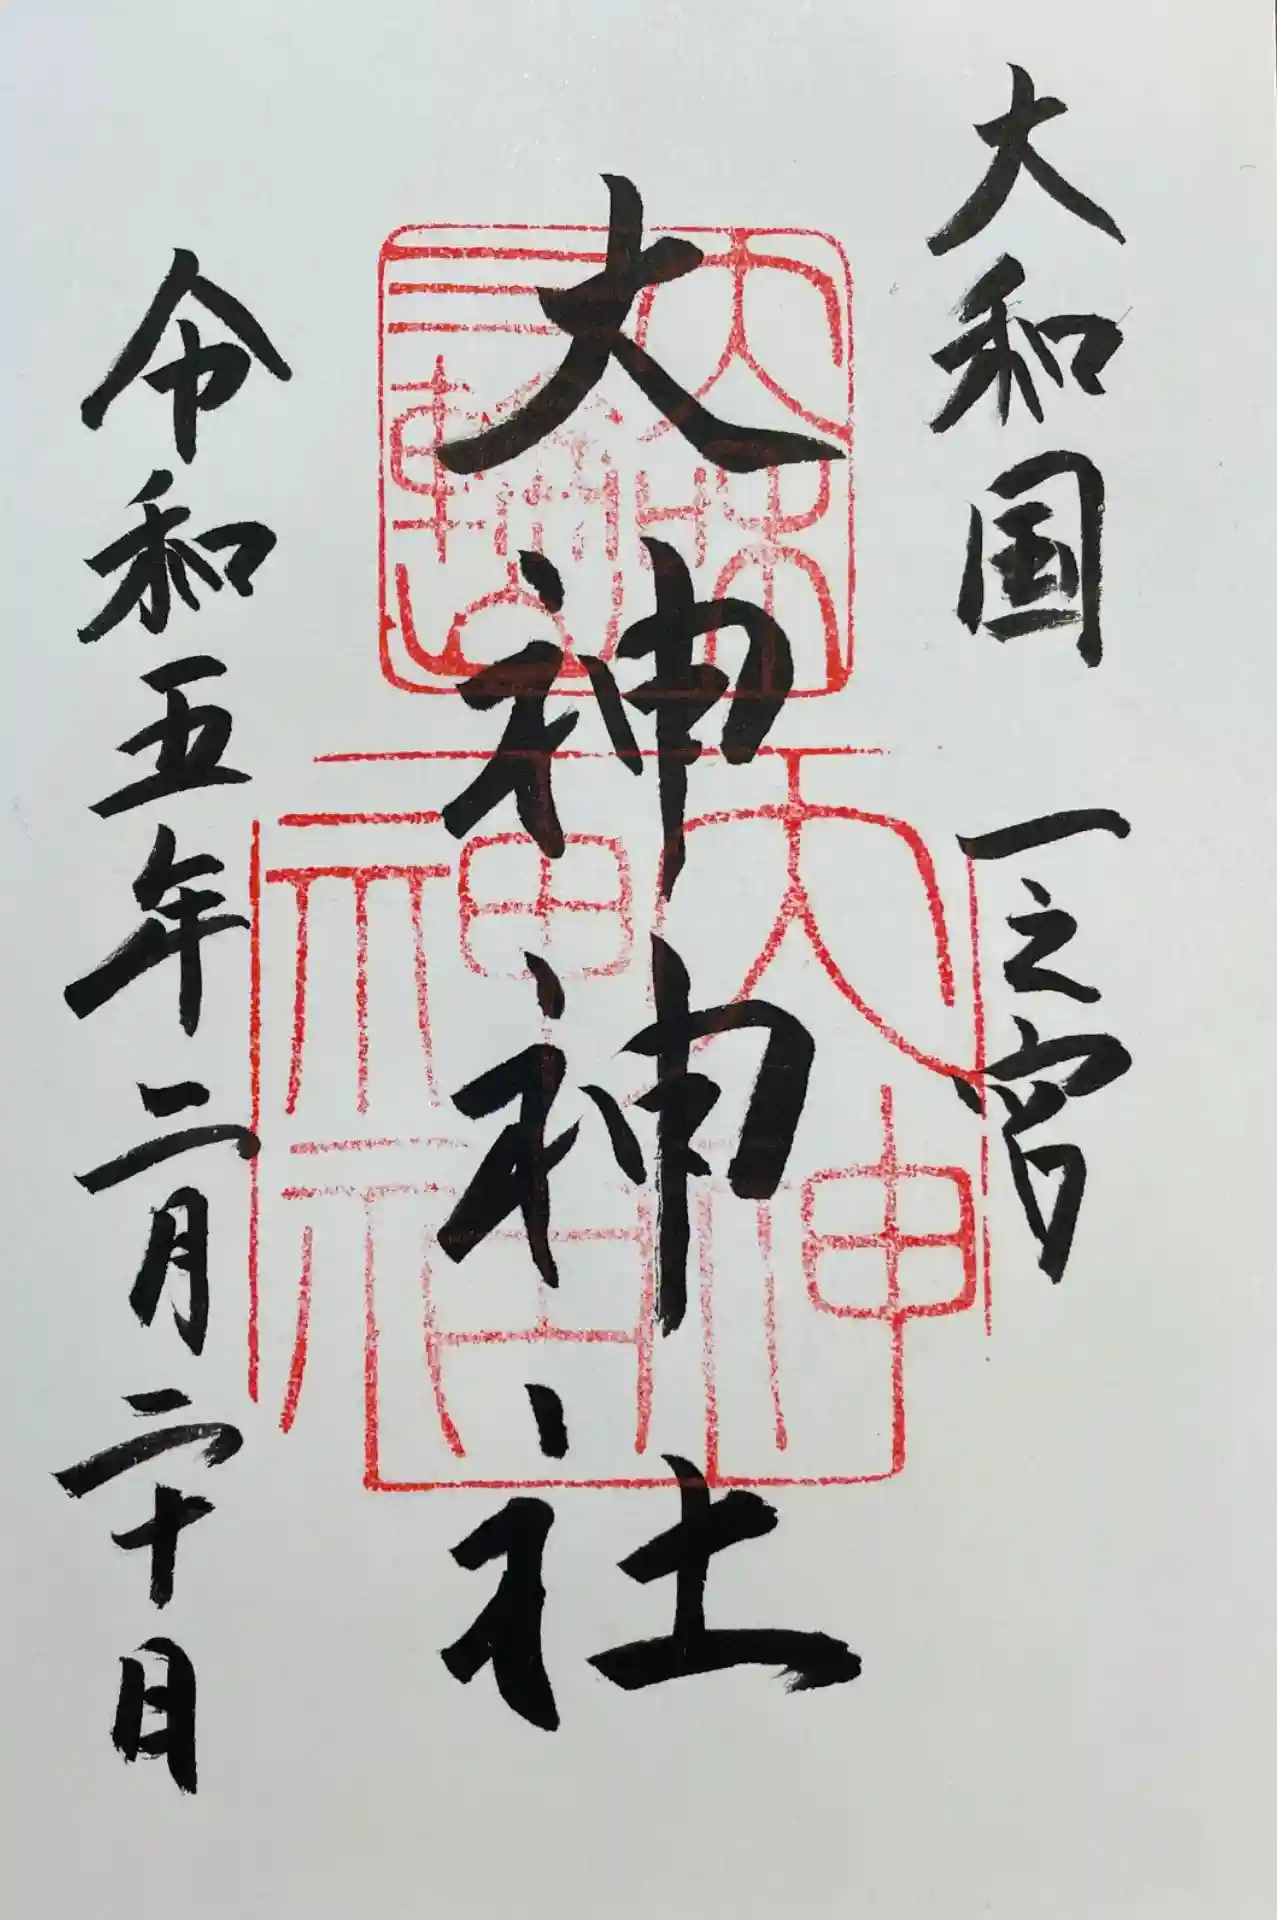 大和国 一之宮
大神神社
令和五年二月二十日
大和
三輪山
大神
神社